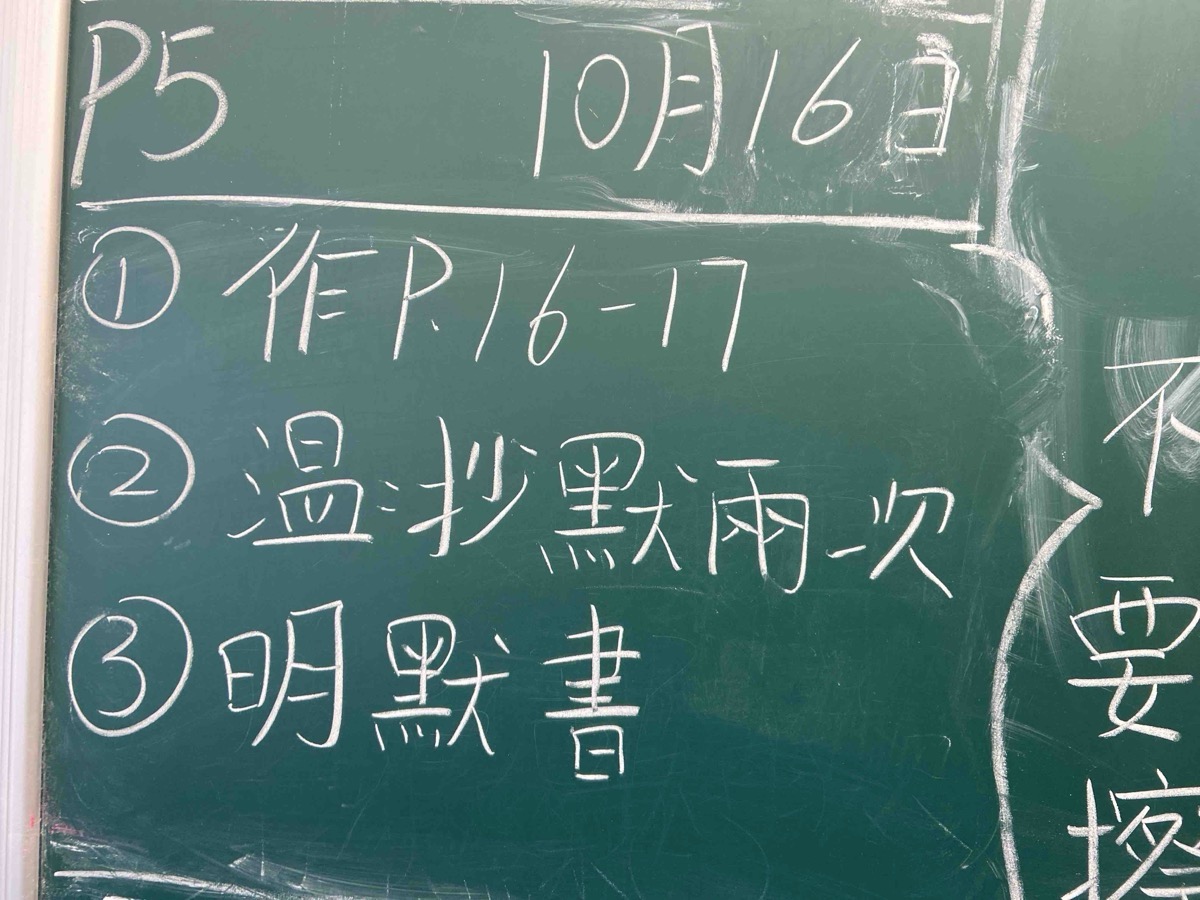 P5 10月16日
① 作P.16-17
② 温:抄默兩次
③ 明默書
不
要
擦